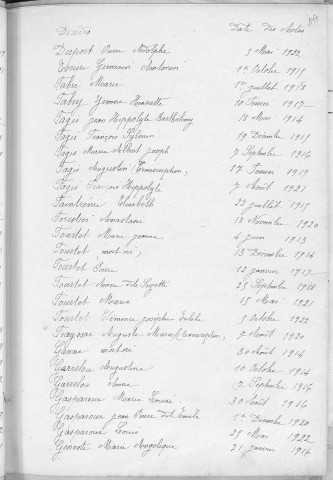 Décès Date des Actes
Duport Pierre Adolphe 3 Mai 1922
Germain Antonin 1er Octobre 1915
Fabre Marie 1er juillet 1918
Fabry Yvonne Henriette 10 Février 1917
Fagis jean Hippolyte Barthélemy 18 Mai 1914
Fagis François Sylvain 19 Décembre 1915
Fagis Marius Albert joseph 7 Septembre 1916
Fagis Augustin (transcription) 17 Février 1919
Fagis François Hippolyte 7 Août 1921
Elisabeth 22 juillet 1915
Anastasie 13 Novembre 1920
Fourtet Marie jeanne 4 juin 1913
Fourtet mort né 13 Décembre 1914
Fourtet Pierre 12 janvier 1917
Fourtet Anne dite Lisette 25 Septembre 1918
Fourtet Maria 15 Mai 1921
Fourtet Clémence joséphine Eulalie 5 Octobre 1922
Frayssac Auguste Marius (transcription) 7 Août 1920
mort né 30 Août 1914
Garrelou Augustine 10 Octobre 1914
Garrelou Anna 17 Septembre 1916
Gasparoux Marie Louise 30 Août 1916
Gasparoux jean Pierre dit Emile 1er Décembre 1920
Gasparoux Louis 25 Mai 1922
Genieste Marie Angelique 21 janvier 1914